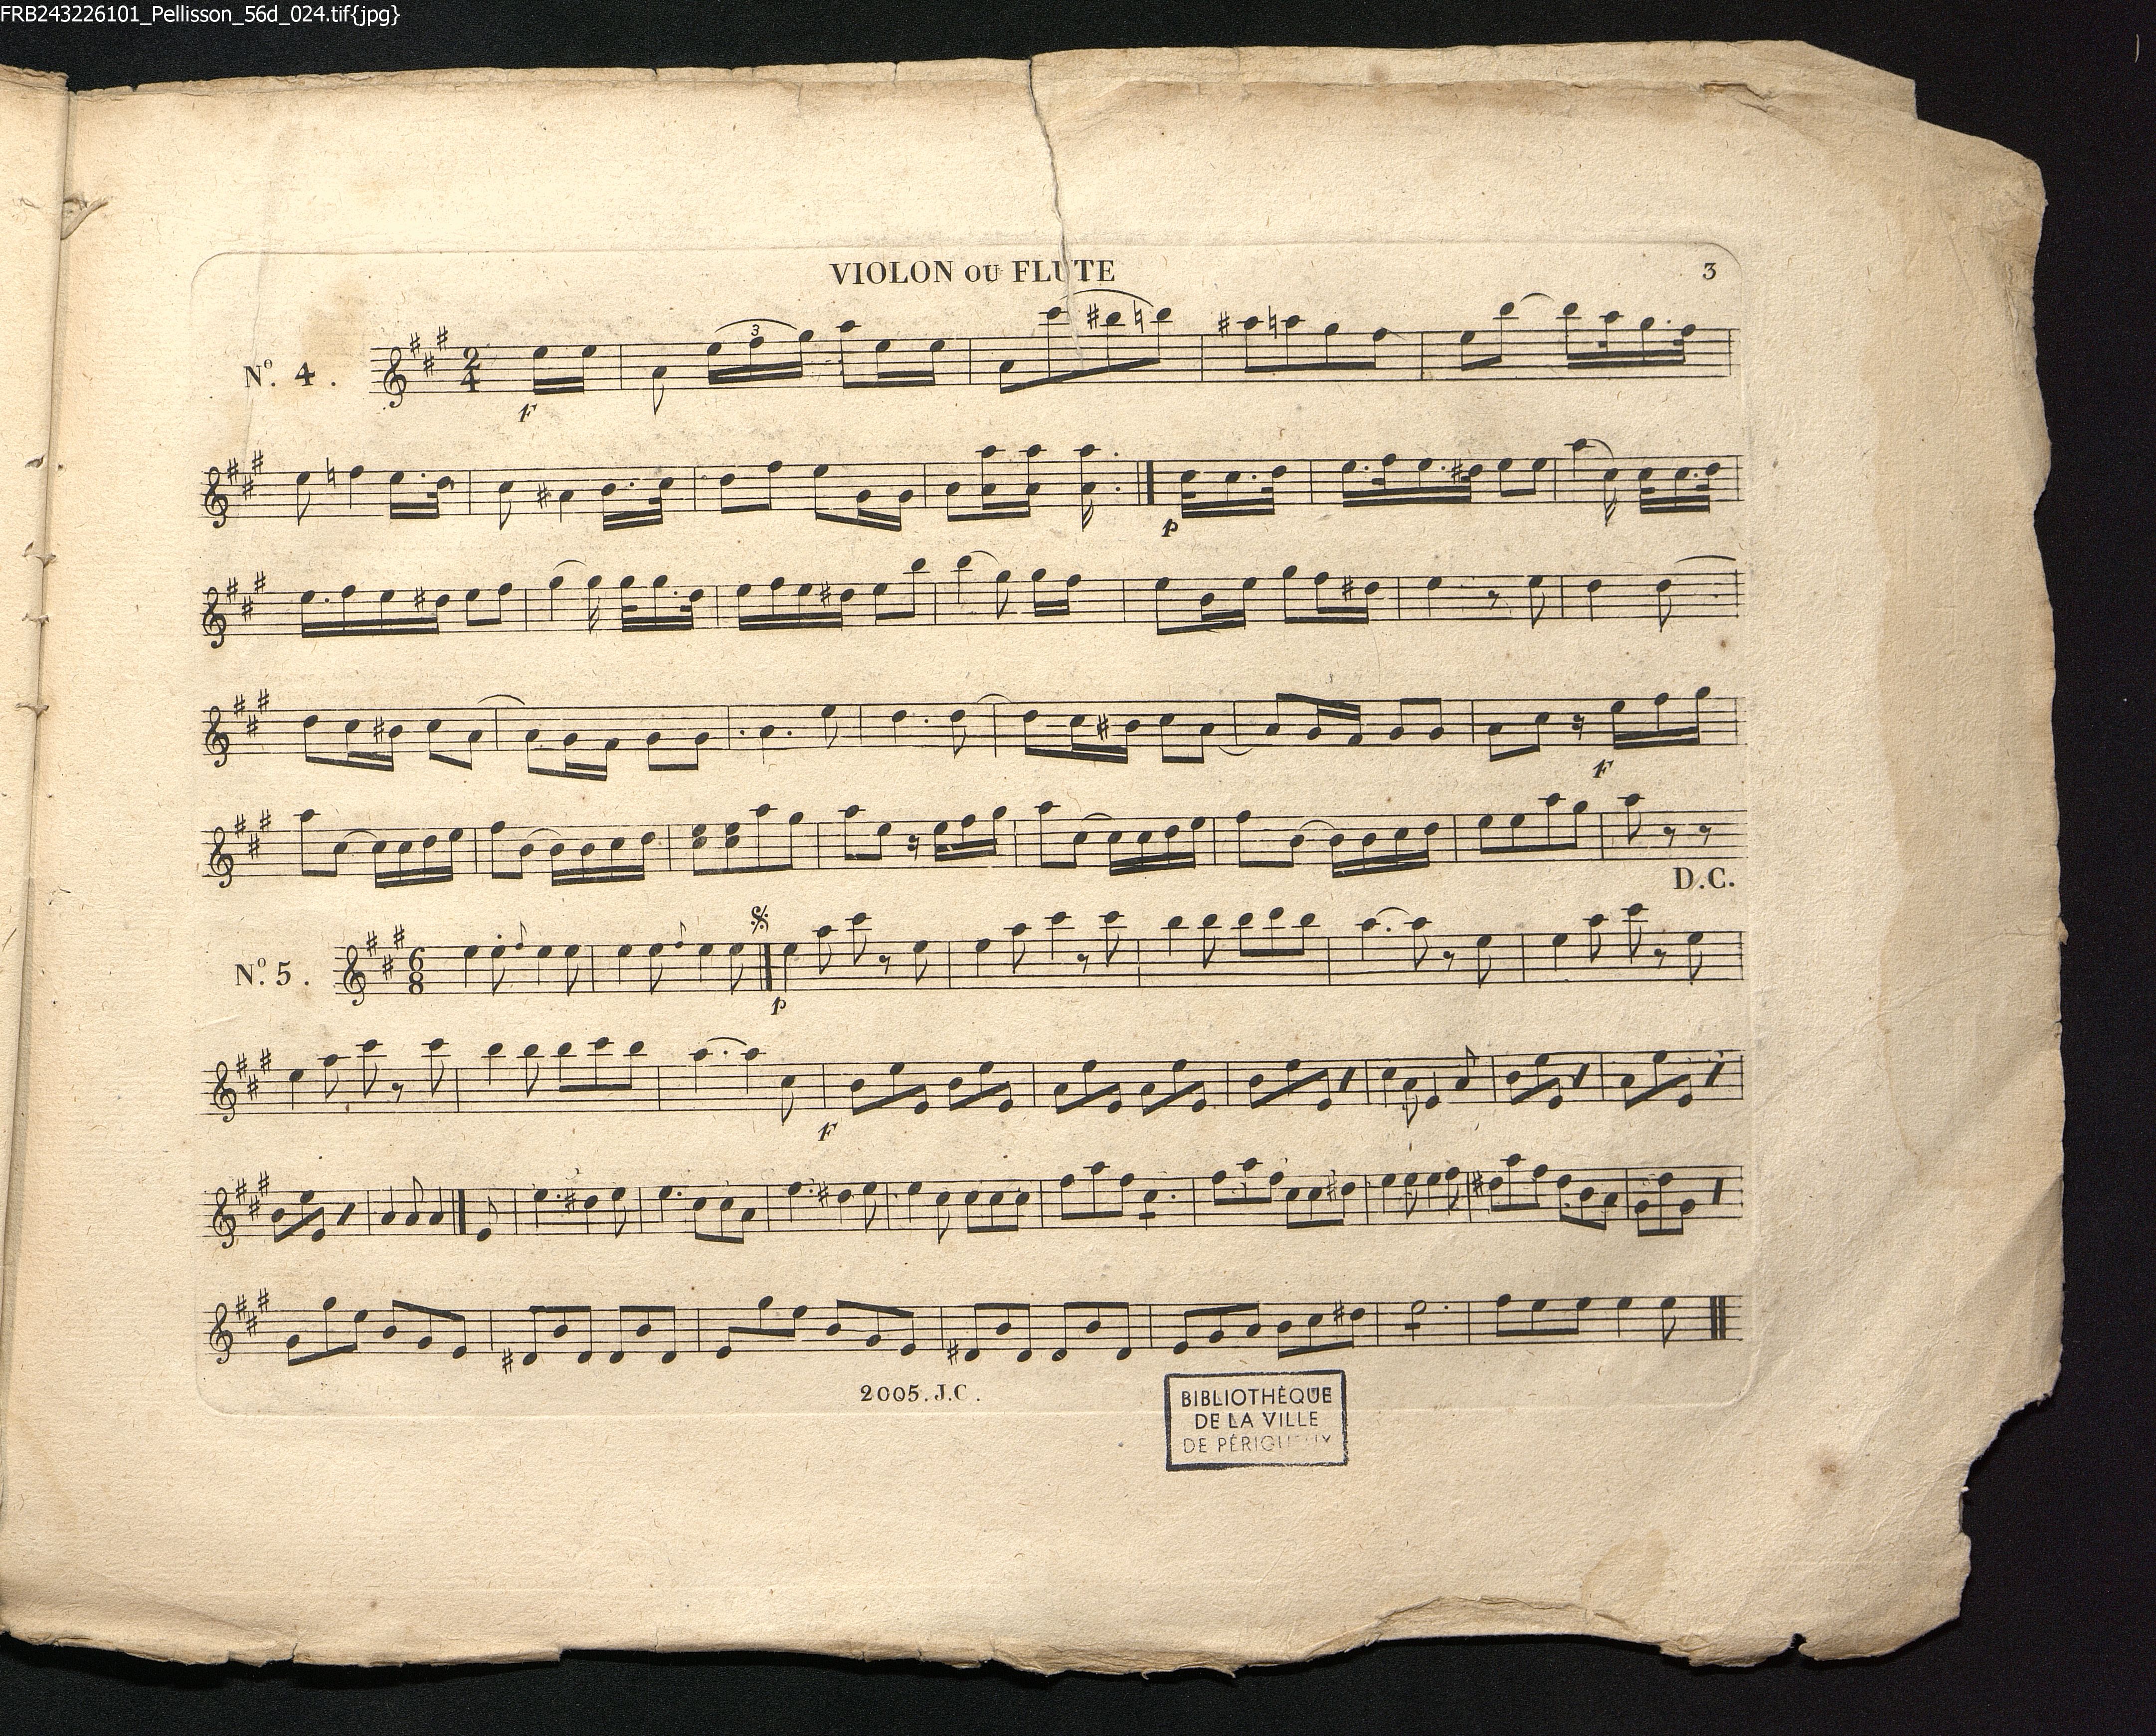 FRB243226101_Pellisson_56d_024.tif{jpg}
VIOLON OU FLUTE
3
Nº. 4.
2
4
3
F
p
F
D.C.
Nº. 5.
6
8
p
F
2005. J.C.
BIBLIOTHÈQUE
DE LA VILLE
DE PÉRIGUEUX